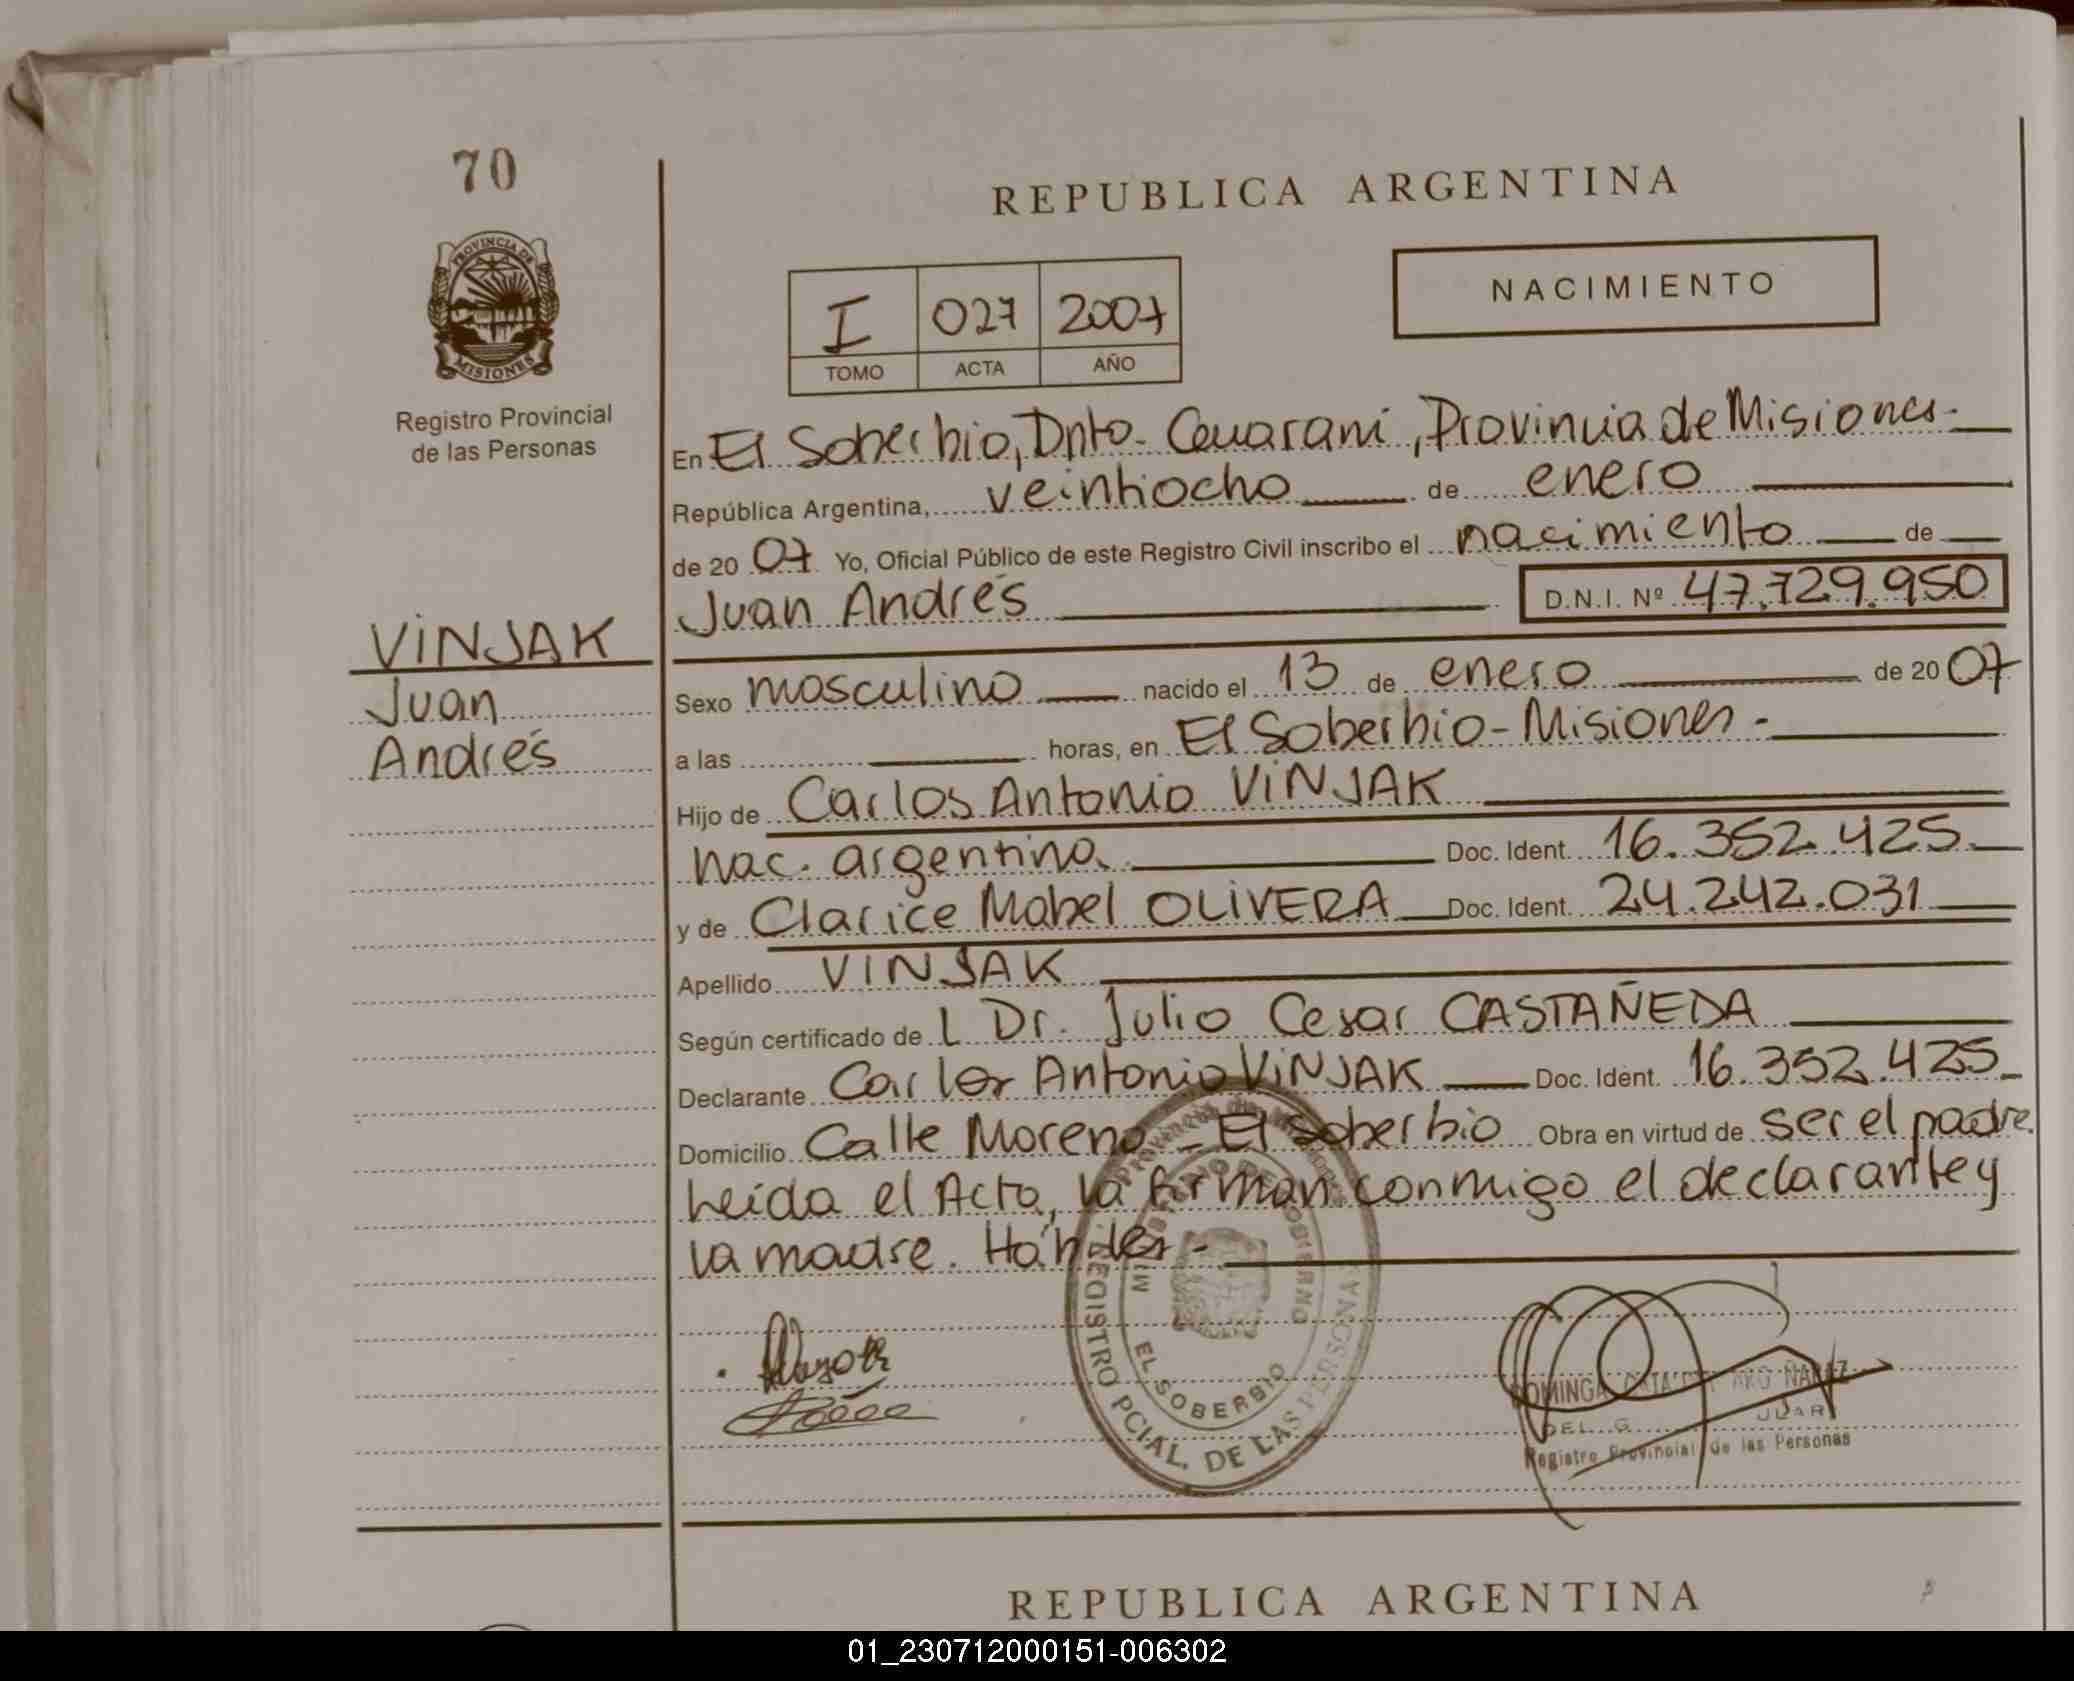 70
PROVINCIA DE
MISIONES
Registro Provincial
de las Personas
REPUBLICA ARGENTINA
I 027 2007
TOMO ACTA AÑO
NACIMIENTO
En El Soberbio, Dpto. Guaraní, Provincia de Misiones.
República Argentina, veintiocho de enero
de 20 07 Yo, Oficial Público de este Registro Civil inscribo el nacimiento de
Juan Andrés D.N.I. Nº 47.729.950
VINJAK
Juan
Andrés
Sexo masculino nacido el 13 de enero de 20 07
a las horas, en El Soberbio - Misiones -
Hijo de Carlos Antonio VINJAK
nac. argentina. Doc. Ident. 16.352.425
y de Clarice Mabel OLIVERA Doc. Ident. 24.242.031
Apellido VINJAK
Según certificado de l Dr. Julio Cesar CASTAÑEDA
Declarante Carlos Antonio VINJAK Doc. Ident. 16.352.425
Domicilio Calle Moreno - El Soberbio Obra en virtud de ser el padre.
Leída el Acta, la firman conmigo el declarante y
la madre.
MINISTERIO DE GOBIERNO
EL SOBERBIO
REGISTRO PCIAL. DE LAS PERSONAS
DOMINGA
Registro Provincial de las Personas
REPUBLICA ARGENTINA
01_230712000151-006302